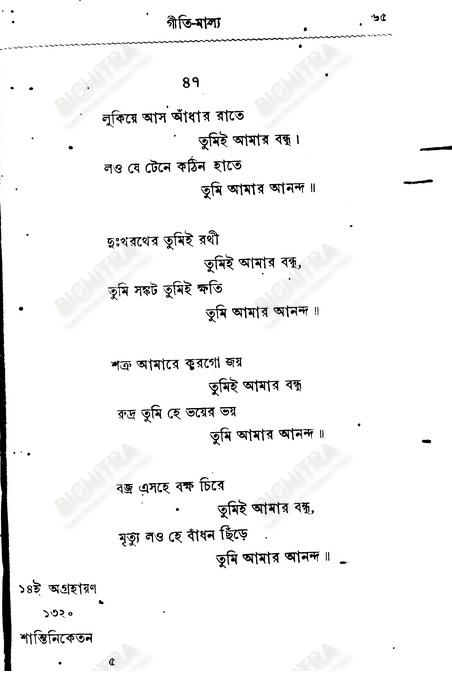 গীতি-মাল্য ৬৫
৪৭
লুকিয়ে আস আঁধার রাতে
তুমিই আমার বন্ধু।
লও যে টেনে কঠিন হাতে
তুমি আমার আনন্দ॥
দুঃখরথের তুমিই রথী
তুমিই আমার বন্ধু,
তুমি সঙ্কট তুমিই ক্ষতি
তুমি আমার আনন্দ॥
শত্রু আমারে করগো জয়
তুমিই আমার বন্ধু
রুদ্র তুমি হে ভয়ের ভয়
তুমি আমার আনন্দ॥
বজ্র এসহে বক্ষ চিরে
তুমিই আমার বন্ধু,
মৃত্যু লও হে বাঁধন ছিঁড়ে
তুমি আমার আনন্দ॥
১৪ই অগ্রহায়ণ
১৩২০
শান্তিনিকেতন
৫
BICHITRA
BICHITRA
BICHITRA
BICHITRA
BICHITRA
BICHITRA
BICHITRA
BICHITRA